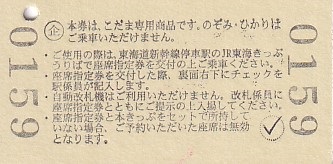 企 本券は、こだま専用商品です。のぞみ・ひかりは
ご乗車いただけません。
・ご使用の際は、東海道新幹線停車駅のJR東海きっぷ
うりばで座席指定券を交付の上ご乗車ください。
・座席指定券を交付した際、裏面右下にチェックを
駅係員が記入します。
・自動改札機はご利用いただけません。改札係員に
座席指定券とともにご提示の上入場してください。
・座席指定券と本きっぷをセットで所持して
いない場合、ご予約いただいた座席は無効
となります。
0159
0159